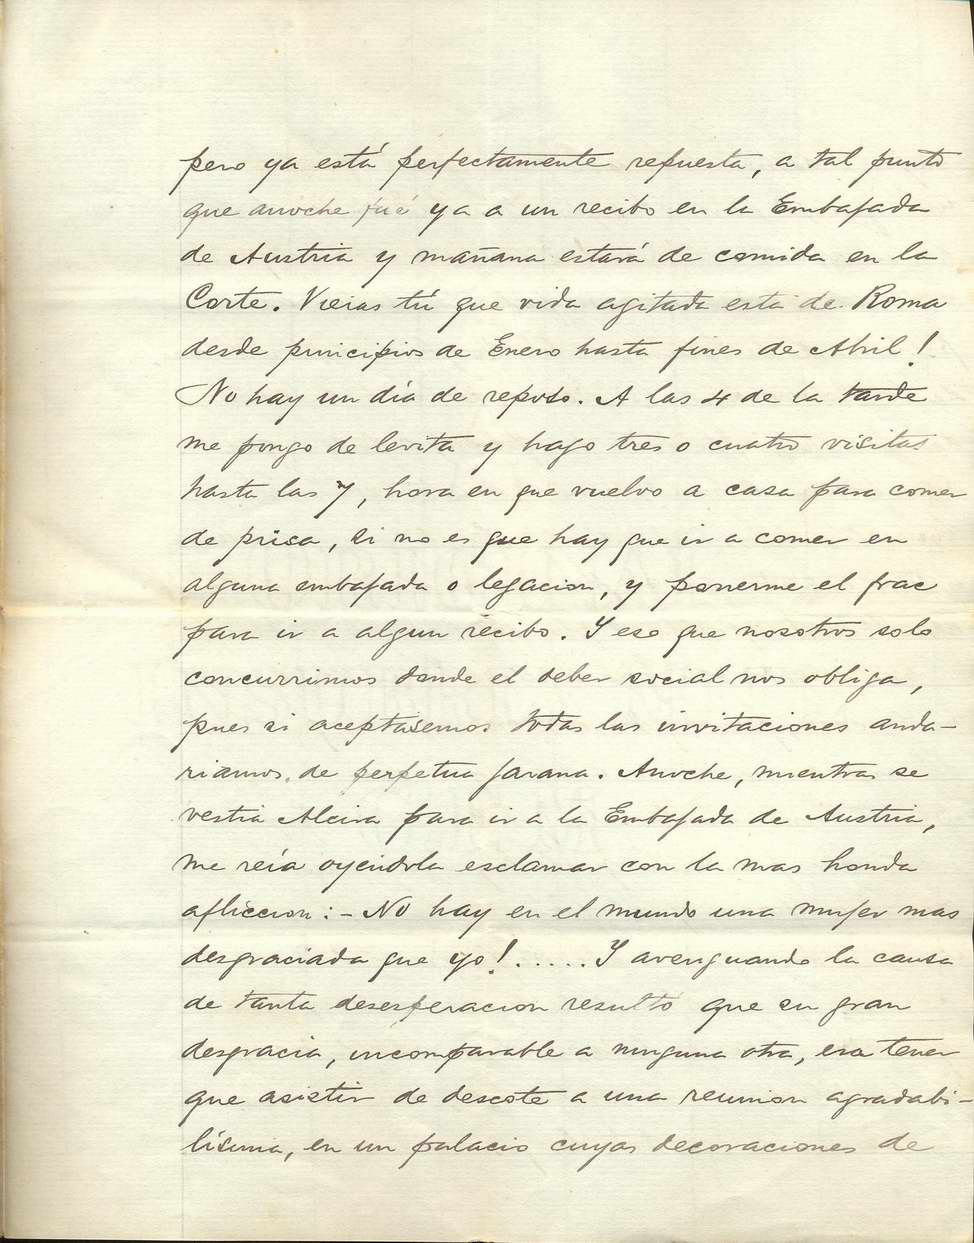 pero ya está perfectamente repuesta, a tal punto
que anoche fué ya a un recibo en la Embajada
de Austria y mañana estará de comida en la
Corte. Vieras tú que vida agitada esta de Roma
desde principios de Enero hasta fines de Abril!
No hay un día de reposo. A las 4 de la tarde
me pongo de levita y hago tres o cuatro visitas
hasta las 7, hora en que vuelvo a casa para comer
de prisa, si no es que hay que ir a comer en
alguna embajada o legacion, y ponerme el frac
para ir a algun recibo. Y eso que nosotros solo
concurrimos donde el deber social nos obliga,
pues si aceptasemos todas las invitaciones anda-
riamos de perpetua jarana. Anoche, mientras se
vestia Alcira para ir a la Embajada de Austria,
me reía oyendola esclamar con la mas honda
afliccion: - No hay en el mundo una mujer mas
desgraciada que yo! ..... Y averiguando la causa
de tanta desesperacion resultó que su gran
desgracia, incomparable a ninguna otra, era tener
que asistir de descote a una reunion agradabi-
lísima, en un palacio cuyas decoraciones de